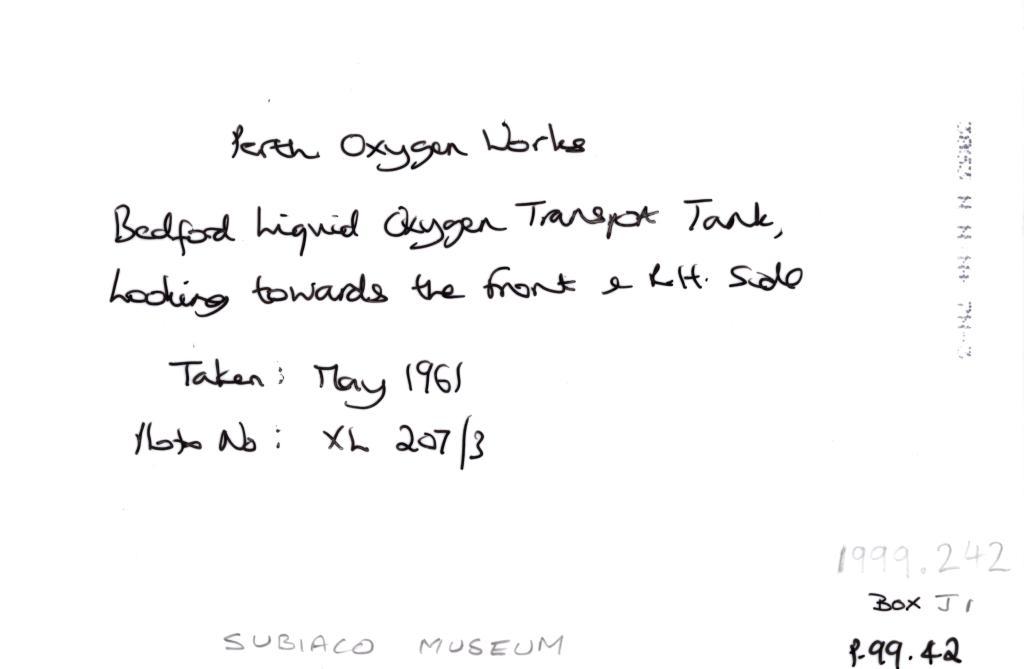 Perth Oxygen Works
Bedford Liquid Oxygen Transport Tank,
Looking towards the front & L.H. Side
Taken: May 1961
Photo No: XL 207/3
1999.242
Box J1
P.99.42
SUBIACO MUSEUM